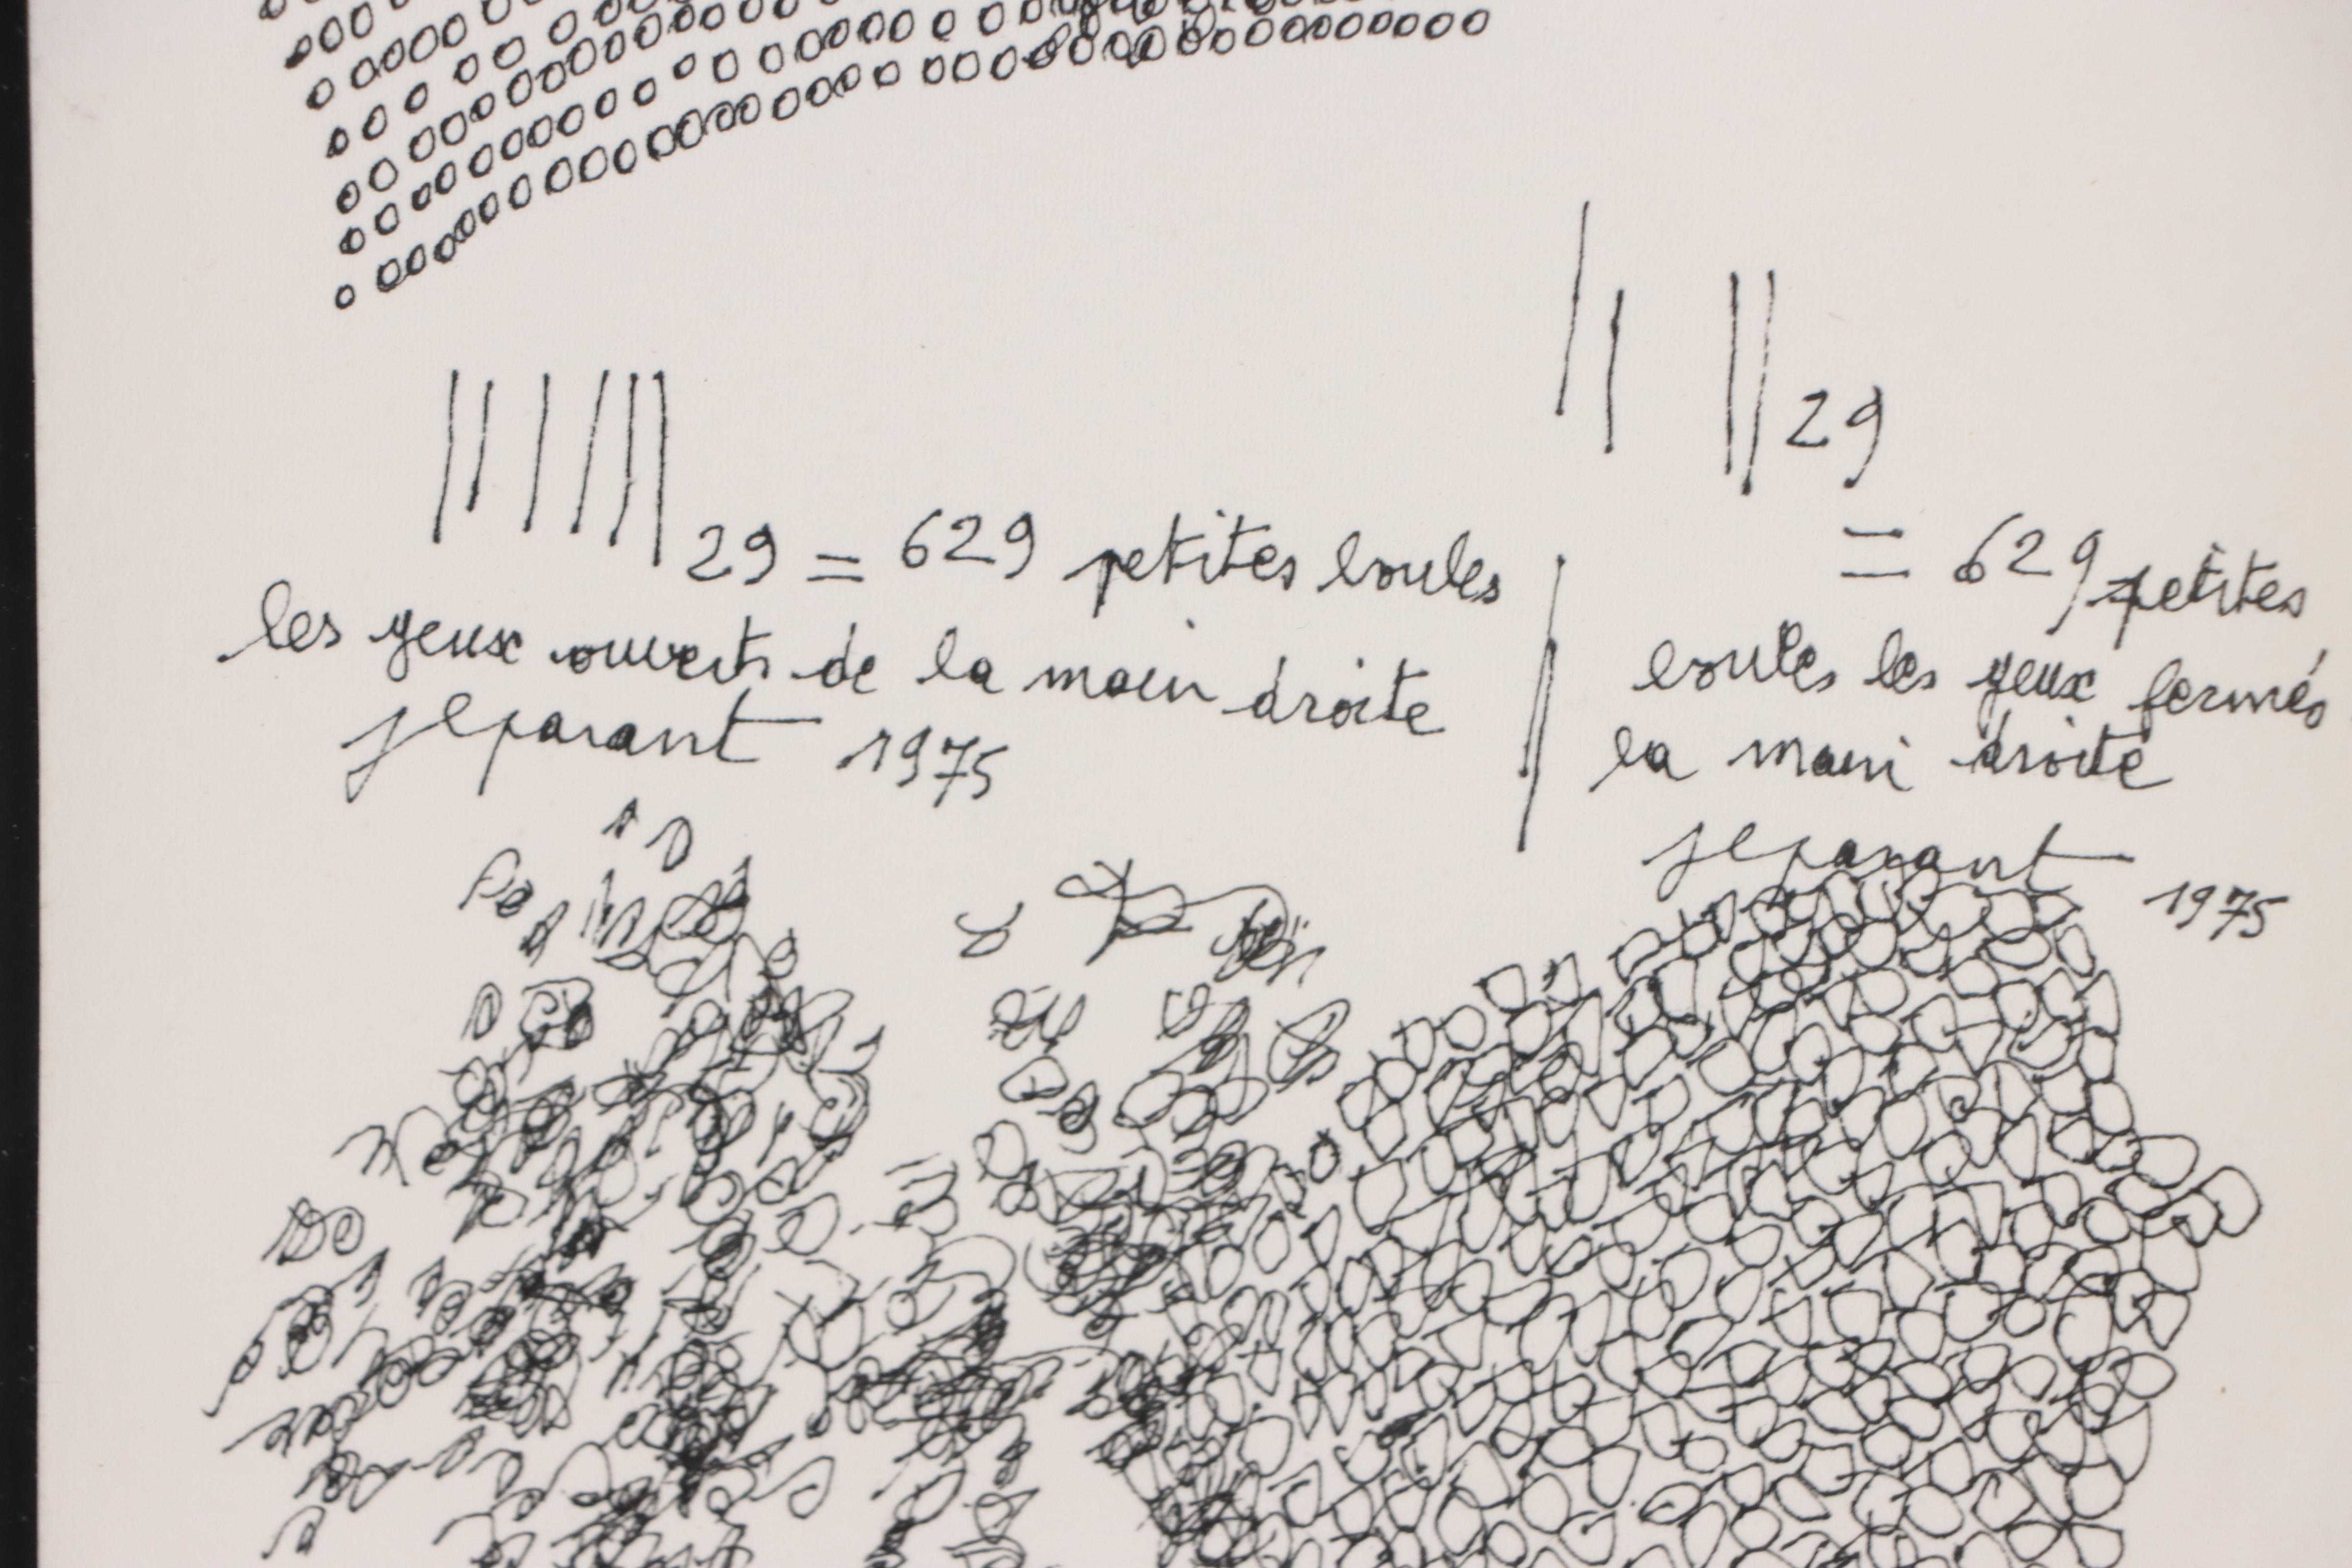 |||||| 29 = 629 petites boules
les yeux ouverts de la main droite
jlparant 1975
|| || 29
= 629 petites
boules les yeux fermés
la main droite
jlparant
1975